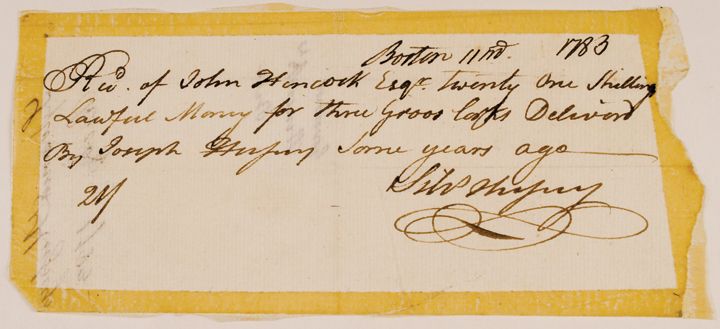 Boston 11th. 1783
Recd. of John Hancock Esqr. twenty One Shillings
Lawful Money for three Groos Corks Deliverd
By Joseph Hussey Some years ago
21/ Silvs Hussey